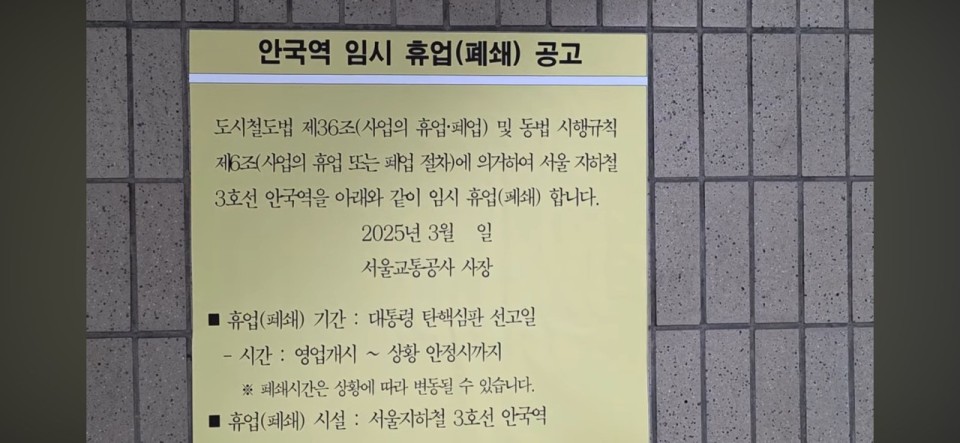 안국역 임시 휴업(폐쇄) 공고
도시철도법 제36조(사업의 휴업·폐업) 및 동법 시행규칙
제6조(사업의 휴업 또는 폐업 절차)에 의거하여 서울 지하철
3호선 안국역을 아래와 같이 임시 휴업(폐쇄) 합니다.
2025년 3월 일
서울교통공사 사장
■ 휴업(폐쇄) 기간 : 대통령 탄핵심판 선고일
- 시간 : 영업개시 ~ 상황 안정시까지
※ 폐쇄시간은 상황에 따라 변동될 수 있습니다.
■ 휴업(폐쇄) 시설 : 서울지하철 3호선 안국역